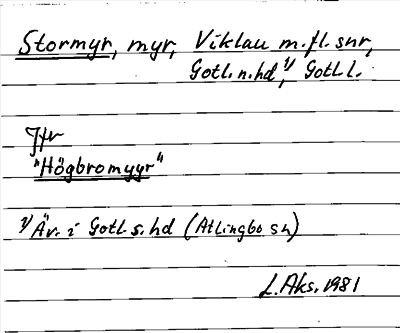 Stormyr, myr, Viklau m.fl. snr,
Gotl. n. hd, 1/ Gotl. l.
Jfr
"Högbromyyr"
1/ Äv. i Gotl. s. hd (Atlingbo sn)
L. Aks. 1981